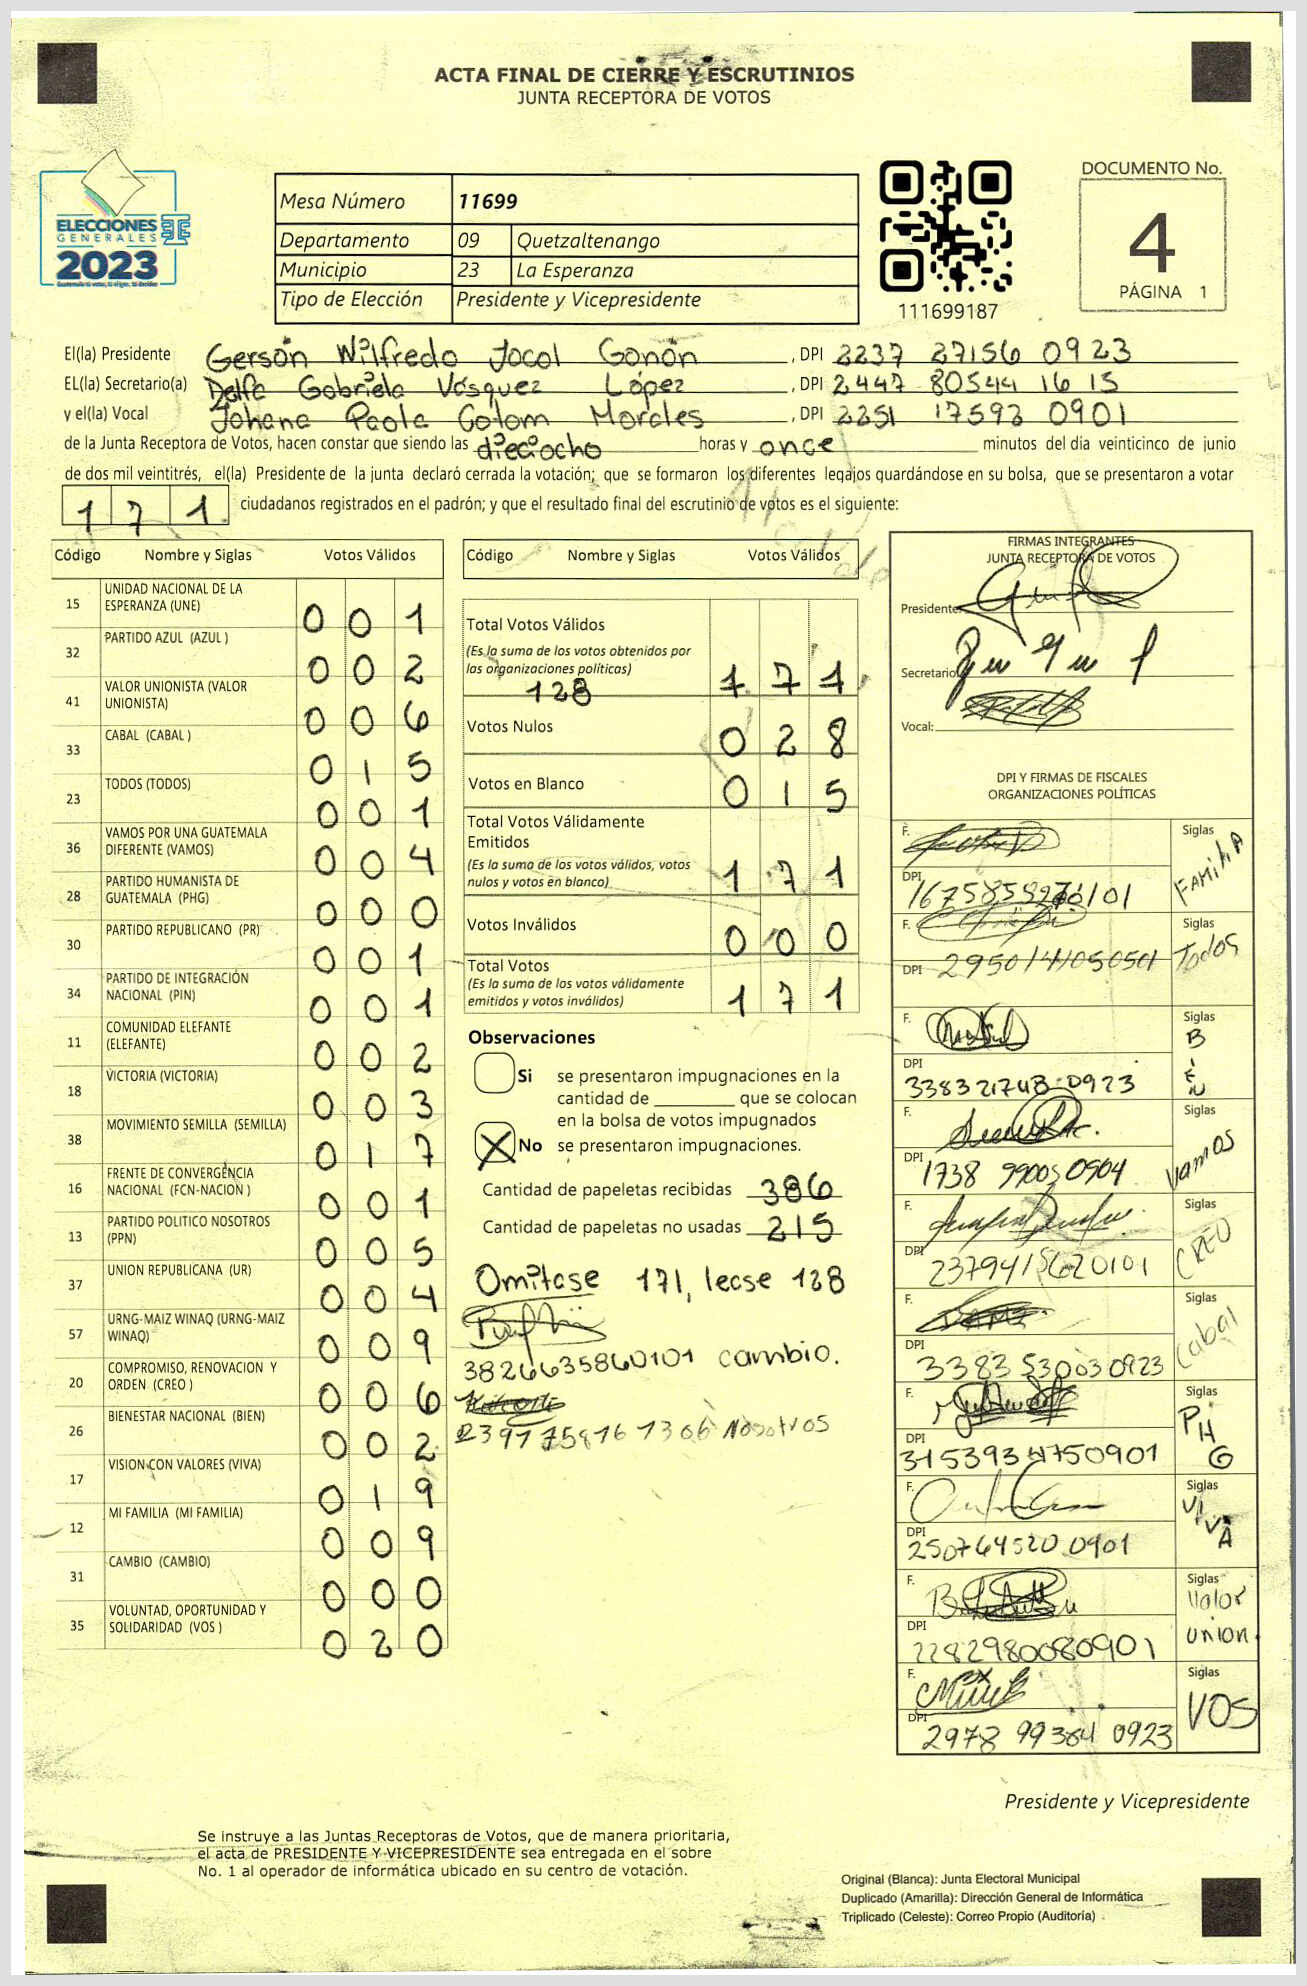 ACTA FINAL DE CIERRE Y ESCRUTINIOS
JUNTA RECEPTORA DE VOTOS
ELECCIONES
GENERALES
2023
Mesa Número 11699
Departamento 09 Quetzaltenango
Municipio 23 La Esperanza
Tipo de Elección Presidente y Vicepresidente
111699187
DOCUMENTO No.
4
PÁGINA 1
El(la) Presidente Gerson Wilfredo Jocol Gonón, DPI 2237 27156 0923
EL(la) Secretario(a) Delfa Gabriela Vásquez López, DPI 2447 80544 16 15
y el(la) Vocal Johana Paola Colom Morales, DPI 2251 17593 0901
de la Junta Receptora de Votos, hacen constar que siendo las dieciocho horas y once minutos del día veinticinco de junio
de dos mil veintitrés, el(la) Presidente de la junta declaró cerrada la votación; que se formaron los diferentes legajos guardándose en su bolsa, que se presentaron a votar
171 ciudadanos registrados en el padrón; y que el resultado final del escrutinio de votos es el siguiente:
Código Nombre y Siglas Votos Válidos
15 UNIDAD NACIONAL DE LA ESPERANZA (UNE) 001
32 PARTIDO AZUL (AZUL ) 002
41 VALOR UNIONISTA (VALOR UNIONISTA) 006
33 CABAL (CABAL ) 015
23 TODOS (TODOS) 001
36 VAMOS POR UNA GUATEMALA DIFERENTE (VAMOS) 004
28 PARTIDO HUMANISTA DE GUATEMALA (PHG) 000
30 PARTIDO REPUBLICANO (PR) 001
34 PARTIDO DE INTEGRACIÓN NACIONAL (PIN) 001
11 COMUNIDAD ELEFANTE (ELEFANTE) 002
18 VICTORIA (VICTORIA) 003
38 MOVIMIENTO SEMILLA (SEMILLA) 017
16 FRENTE DE CONVERGENCIA NACIONAL (FCN-NACION ) 001
13 PARTIDO POLITICO NOSOTROS (PPN) 005
37 UNION REPUBLICANA (UR) 004
57 URNG-MAIZ WINAQ (URNG-MAIZ WINAQ) 009
20 COMPROMISO, RENOVACION Y ORDEN (CREO ) 006
26 BIENESTAR NACIONAL (BIEN) 002
17 VISION CON VALORES (VIVA) 019
12 MI FAMILIA (MI FAMILIA) 009
31 CAMBIO (CAMBIO) 000
35 VOLUNTAD, OPORTUNIDAD Y SOLIDARIDAD (VOS ) 020
Código Nombre y Siglas Votos Válidos
Total Votos Válidos
(Es la suma de los votos obtenidos por
las organizaciones políticas)
128 171
Votos Nulos 028
Votos en Blanco 015
Total Votos Válidamente
Emitidos
(Es la suma de los votos válidos, votos
nulos y votos en blanco) 171
Votos Inválidos 000
Total Votos
(Es la suma de los votos válidamente
emitidos y votos inválidos) 171
Observaciones
Si se presentaron impugnaciones en la
cantidad de ________ que se colocan
en la bolsa de votos impugnados
X No se presentaron impugnaciones.
Cantidad de papeletas recibidas 386
Cantidad de papeletas no usadas 215
Omitase 171, lease 128
3826635860101 cambio.
2391758161306 Nosotros
FIRMAS INTEGRANTES
JUNTA RECEPTORA DE VOTOS
Presidente:
Secretario
Vocal:
DPI Y FIRMAS DE FISCALES
ORGANIZACIONES POLÍTICAS
F. Siglas
DPI FAMILIA
F. Siglas
DPI Todos
F. Siglas
DPI 338321743 0923 BIEN
F. Siglas
DPI 1738 99005 0904 Vamos
F. Siglas
DPI 2379415620101 CREO
F. Siglas
DPI 3383 53003 0923 Cabal
F. Siglas
DPI 3153934750901 PHG
F. Siglas
DPI 250764520 0901 VIVA
F. Siglas
DPI 2282980080901 Valor union.
F. Siglas
DPI 2978 99384 0923 VOS
Presidente y Vicepresidente
Se instruye a las Juntas Receptoras de Votos, que de manera prioritaria,
el acta de PRESIDENTE Y VICEPRESIDENTE sea entregada en el sobre
No. 1 al operador de informática ubicado en su centro de votación.
Original (Blanca): Junta Electoral Municipal
Duplicado (Amarilla): Dirección General de Informática
Triplicado (Celeste): Correo Propio (Auditoría)